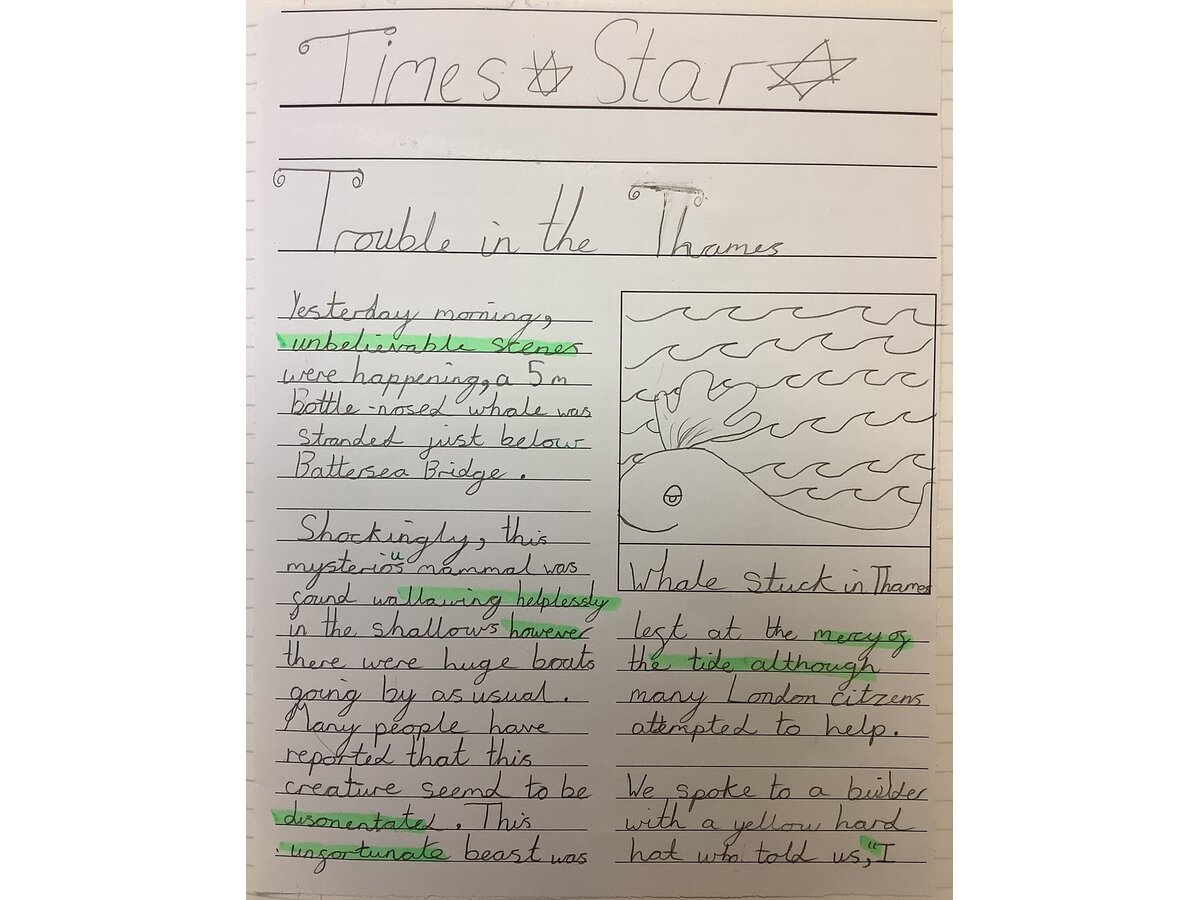 Times Star
Trouble in the Thames
Yesterday morning,
unbelievable scenes
were happening, a 5m
Bottle-nosed whale was
stranded just below
Battersea Bridge.
Shockingly, this
mysterious mammal was
found wallawing helplessly
in the shallows however
there were huge boats
going by as usual.
Many people have
reported that this
creature seemd to be
disorientated. This
unfortunate beast was
Whale stuck in Thames
left at the mercy of
the tide although
many London citzens
attempted to help.
We spoke to a builder
with a yellow hard
hat who told us, "I